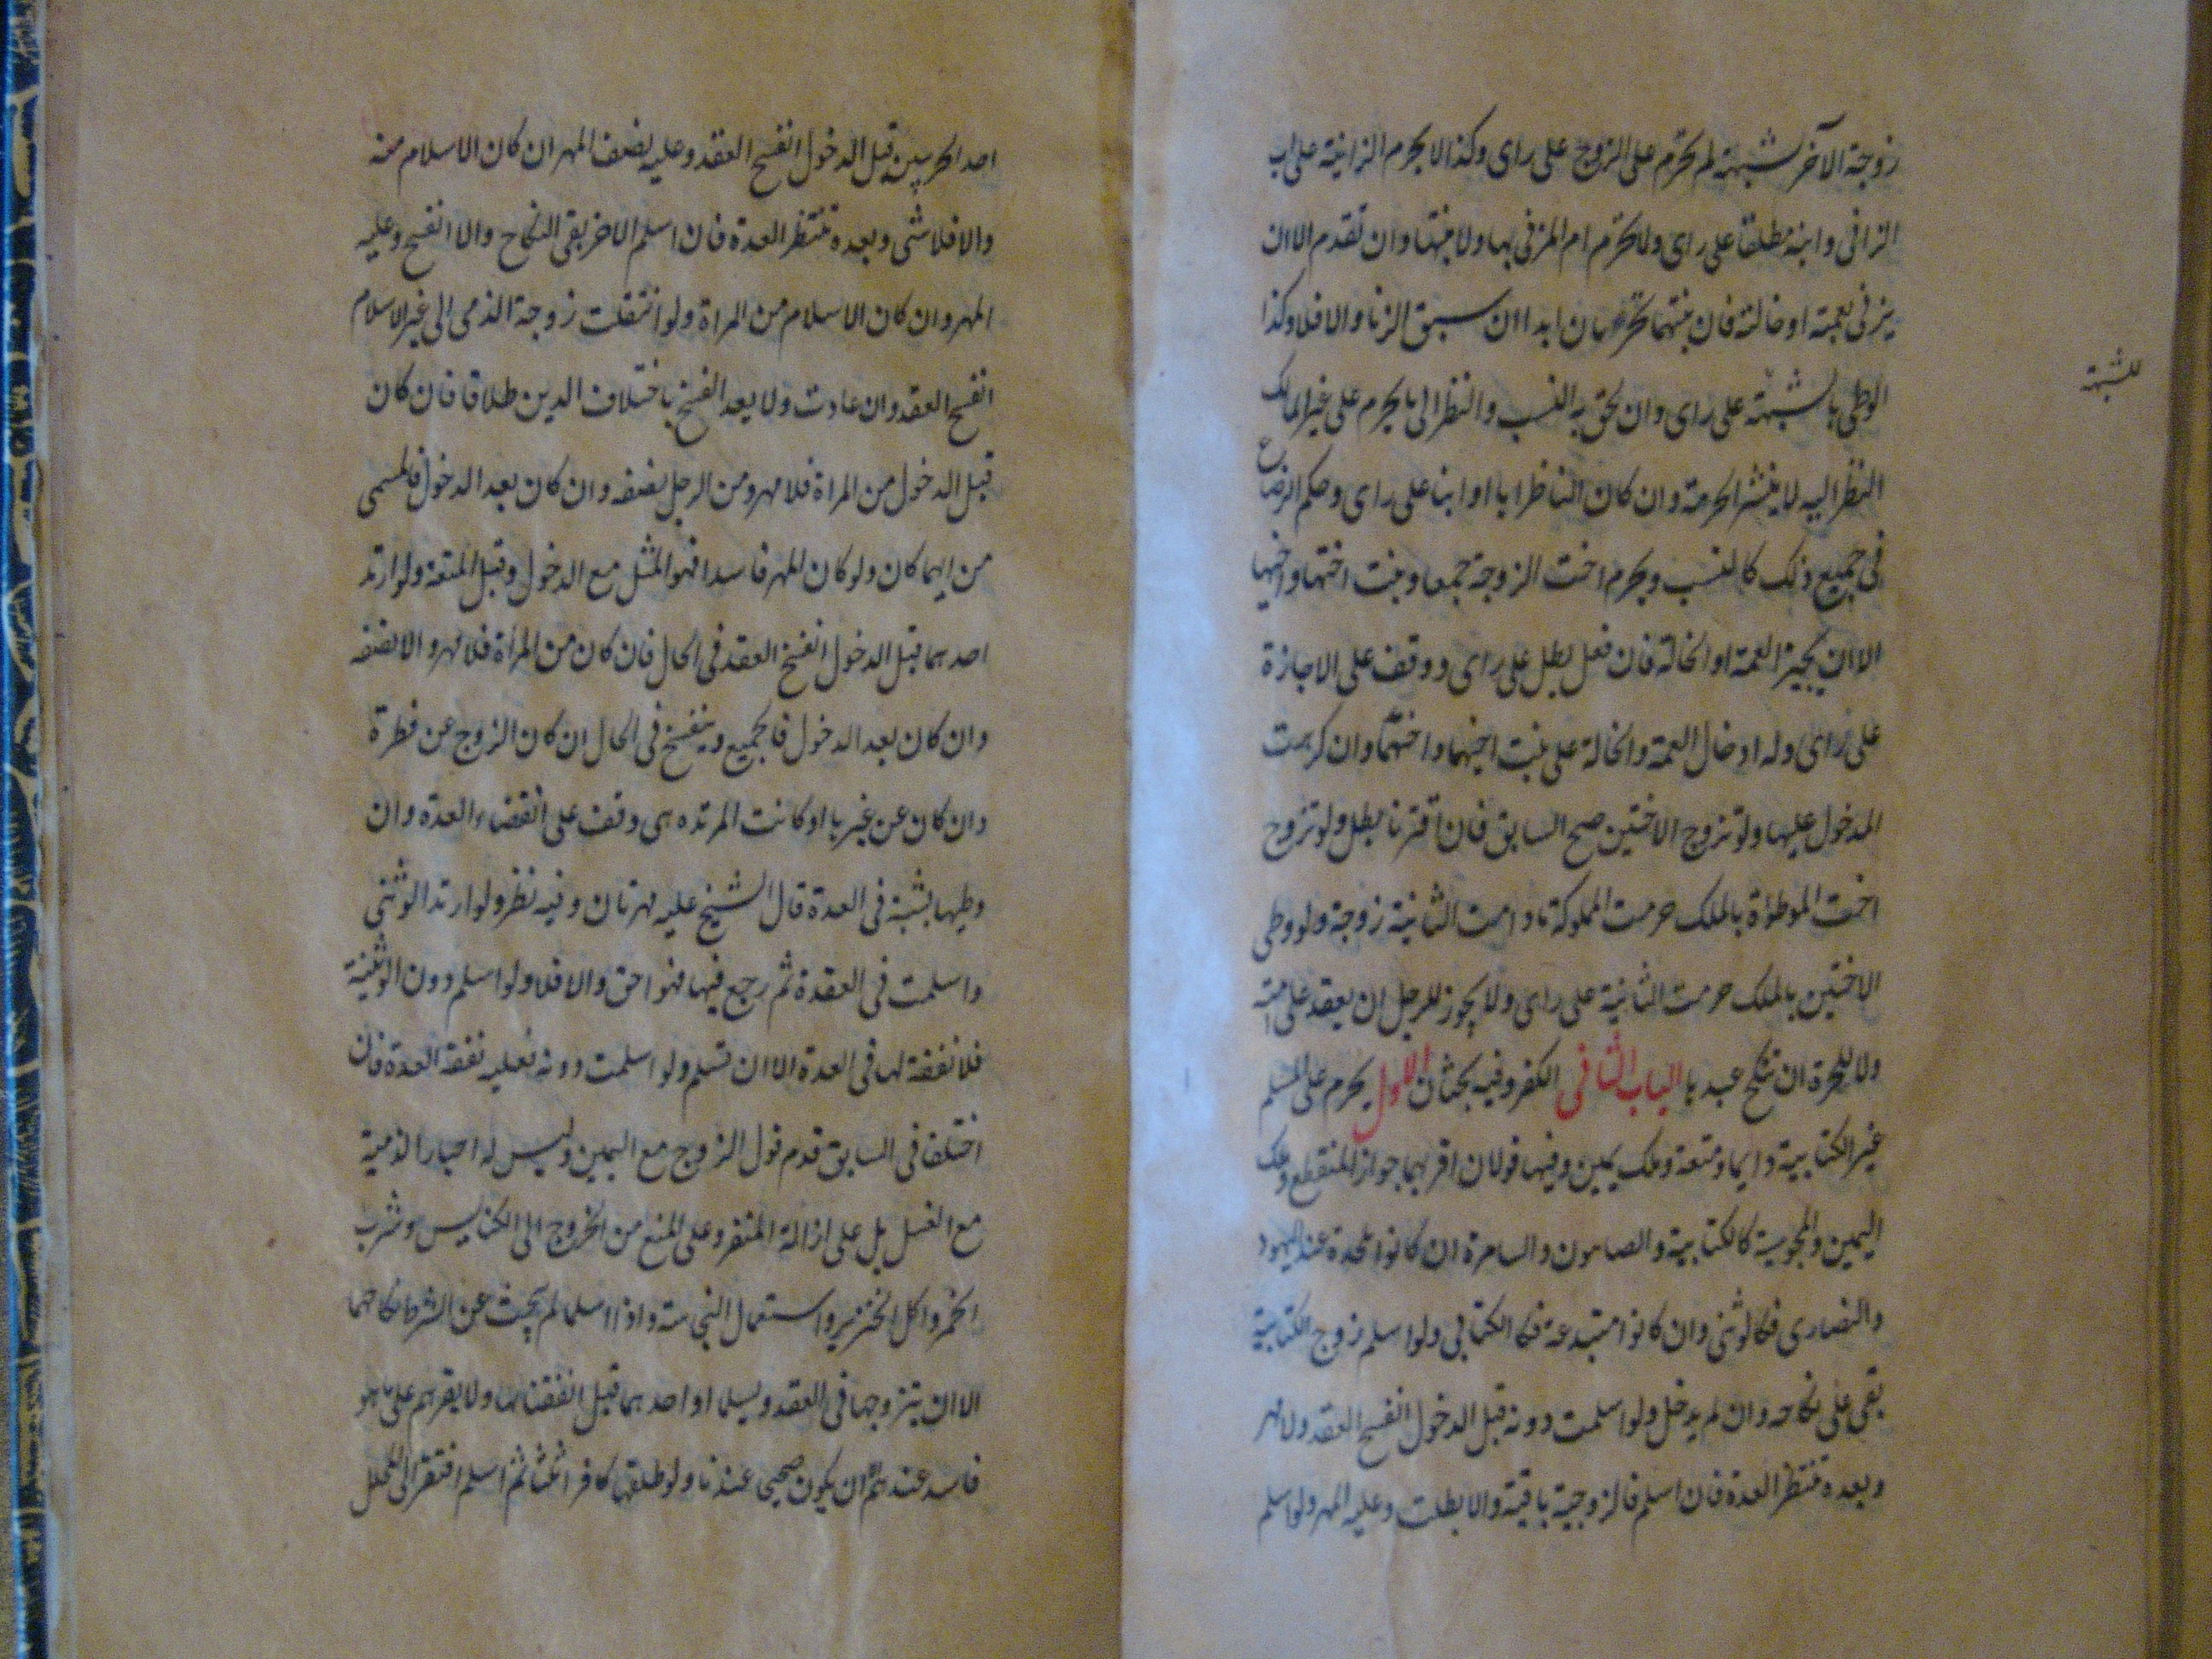 زوجة الآخر لشبهة لم تحرم على الزوج على راى وكذا لا يحرم الزانية على اب
الزانى وابنه مطلقا على راى ولا تحرم ام المزنى بها ولا بنتها وان تقدم الا ان
يزنى بعمته او خالته فان بنتهما تحرمان ابدا ان سبق الزنا والا فلا وكذا
الوطى بالشبهة على راى وان لحق به النسب والنظر الى ما يحرم على غير المالك
النظر اليه لا ينشر الحرمة وان كان الناظر ابا او ابنا على راى وحكم الرضاع
فى جميع ذلك كالنسب ويحرم اخت الزوجة جمعا وبنت اختها واخيها
الا ان تجيز العمة او الخالة فان فعل بطل على راى ووقف على الاجازة
على راى وله ادخال العمة والخالة على بنت اخيهما واختهما وان كرهت
المدخول عليها ولو تزوج الاختين صح السابق فان اقترنا بطل ولو تزوج
اخت الموطؤة بالملك حرمت المملوكة ما دامت الثانية زوجة ولو وطى
الاختين بالملك حرمت الثانية على راى ولا يجوز للرجل ان يعقد على امته
ولا للحرة ان تنكح عبدها الباب الثانى الكفر وفيه بحثان الاول يحرم على المسلم
غير الكتابية دايما ومتعة وملك يمين وفيها قولان اقربهما جواز المنقطع وملك
اليمين والمجوسية كالكتابية والصابيون والسامرة ان كانوا ملحدة عند اليهود
والنصارى فكالوثنى وان كانوا مبتدعة فكالكتابى ولو اسلم زوج الكتابية
بقى على نكاحه وان لم يدخل ولو اسلمت دونه قبل الدخول انفسخ العقد ولا مهر
وبعده تنتظر العدة فان اسلم فالزوجية باقية والا بطلت وعليه المهر ولو اسلم
للشبهة
احد الحربيين قبل الدخول انفسخ العقد وعليه نصف المهر ان كان الاسلام منه
والا فلا شى وبعده تنتظر العدة فان اسلم الاخر بقى النكاح والا انفسخ وعليه
المهر وان كان الاسلام من المراة ولو انتقلت زوجة الذمى الى غير الاسلام
انفسخ العقد وان عادت ولا يعد الفسخ باختلاف الدين طلاقا فان كان
قبل الدخول من المراة فلا مهر ومن الرجل نصفه وان كان بعد الدخول فالمسمى
من ايهما كان ولو كان المهر فاسدا فمهر المثل مع الدخول وقبل المتعة ولو ارتد
احدهما قبل الدخول انفسخ العقد فى الحال فان كان من المرأة فلا مهر والا نصفه
وان كان بعد الدخول فالجميع وينفسخ فى الحال ان كان الزوج عن فطرة
وان كان عن غيرها او كانت المرتده هى وقف على انقضاء العدة وان
وطيها بشبهة فى العدة قال الشيخ عليه مهران وفيه نظر ولو ارتد الوثنى
واسلمت فى العدة ثم رجع فيها فهو احق والا فلا ولو اسلم دون الوثنية
فلا نفقة لها فى العدة الا ان تسلم ولو اسلمت دونه فعليه نفقة العدة فان
اختلفا فى السابق قدم قول الزوج مع اليمين وليس له اجبار الذمية
مع الغسل بل على ازالة المنفر وعلى المنع من الخروج الى الكنايس وشرب
الخمر واكل الخنزير واستعمال النجاسة واذا اسلما لم يبحث عن الشرط نكاحهما
الا ان يتزوجها فى العقد ويسلما او احدهما قبل انقضائها ولا يقرهم على ما هو
فاسد عندهم الا ان يكون صحيحا عندنا ولو طلقها كافرا ثلثا ثم اسلم افتقر الى المحلل